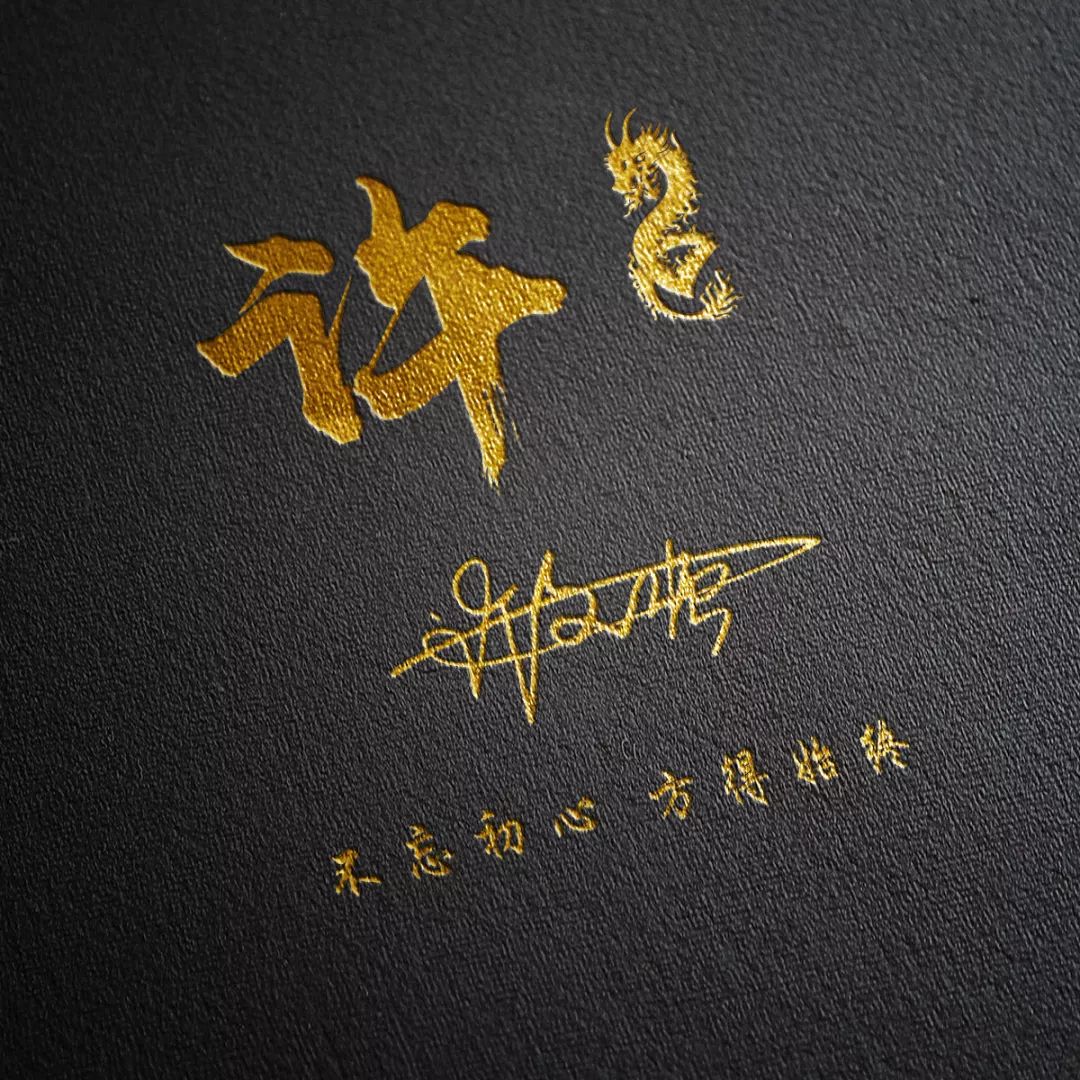 许
不忘初心 方得始终